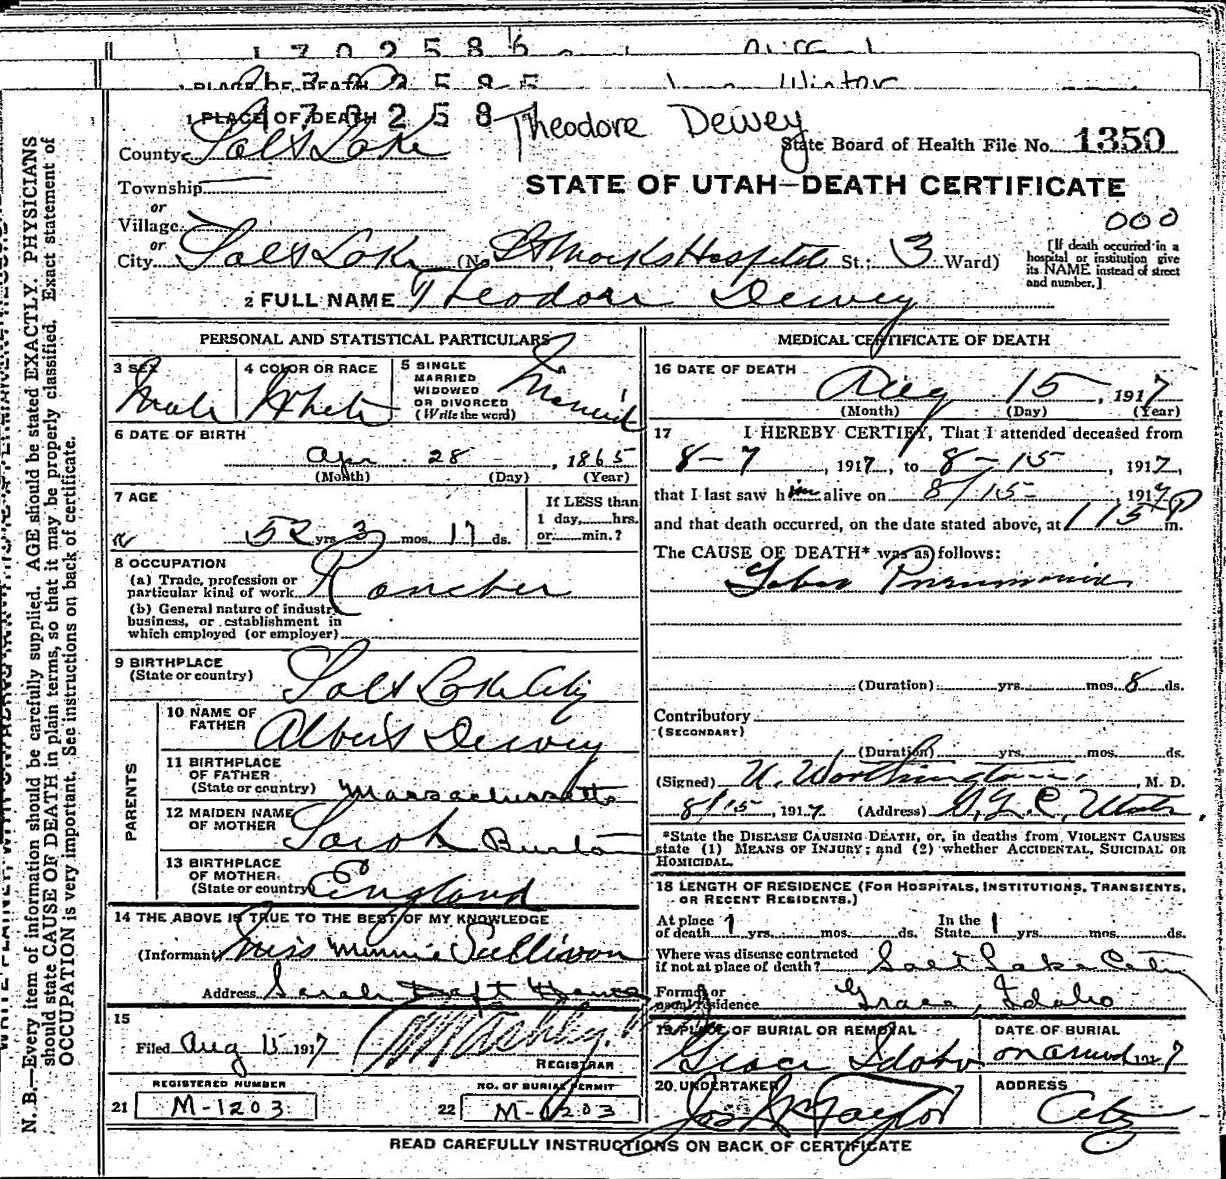 1 7 0 2 5 8 6
1 PLACE OF DEATH 1 7 0 2 5 8 5 Winter
1 PLACE OF DEATH 1 7 0 2 5 8 Theodore Dewey
County Salt Lake State Board of Health File No. 1350
Township
STATE OF UTAH—DEATH CERTIFICATE
or
Village
000
or
City Salt Lake (No. St Marks Hospital St.; 3 Ward)
[If death occurred in a hospital or institution give its NAME instead of street and number.]
2 FULL NAME Theodore Dewey
PERSONAL AND STATISTICAL PARTICULARS
3 SEX Male
4 COLOR OR RACE White
5 SINGLE MARRIED WIDOWED OR DIVORCED (Write the word) Married
6 DATE OF BIRTH
Apr 28, 1865
(Month) (Day) (Year)
7 AGE
52 yrs. 3 mos. 17 ds.
If LESS than 1 day, hrs. or min.?
8 OCCUPATION
(a) Trade, profession or particular kind of work Rancher
(b) General nature of industry, business, or establishment in which employed (or employer)
9 BIRTHPLACE (State or country) Salt Lake City
PARENTS
10 NAME OF FATHER Albert Dewey
11 BIRTHPLACE OF FATHER (State or country) Massachussetts
12 MAIDEN NAME OF MOTHER Sarah Burton
13 BIRTHPLACE OF MOTHER (State or country) England
14 THE ABOVE IS TRUE TO THE BEST OF MY KNOWLEDGE
(Informant) Miss Minnie Sullivan
Address Sarah Daft Home
15
Filed Aug 15 1917
REGISTRAR
REGISTERED NUMBER
21 M-1203
NO. OF BURIAL PERMIT
22 M-1203
MEDICAL CERTIFICATE OF DEATH
16 DATE OF DEATH
Aug 15, 1917
(Month) (Day) (Year)
17 I HEREBY CERTIFY, That I attended deceased from
8-7, 1917, to 8-15, 1917,
that I last saw him alive on 8/15, 1917
and that death occurred, on the date stated above, at 115 P m.
The CAUSE OF DEATH* was as follows:
Lobar Pneumonia
(Duration) yrs. mos. 8 ds.
Contributory
(SECONDARY)
(Duration) yrs. mos. ds.
(Signed) Worthington, M. D.
8/15, 1917 (Address) S.L.C. Utah.
*State the DISEASE CAUSING DEATH, or, in deaths from VIOLENT CAUSES
state (1) MEANS OF INJURY; and (2) whether ACCIDENTAL, SUICIDAL OR
HOMICIDAL.
18 LENGTH OF RESIDENCE (FOR HOSPITALS, INSTITUTIONS, TRANSIENTS,
OR RECENT RESIDENTS.)
At place of death 1 yrs. mos. ds. In the State 1 yrs. mos. ds.
Where was disease contracted if not at place of death? Salt Lake City
Former or usual residence Grace, Idaho
19 PLACE OF BURIAL OR REMOVAL Grace Idaho
DATE OF BURIAL 1917
20 UNDERTAKER Taylor
ADDRESS City
READ CAREFULLY INSTRUCTIONS ON BACK OF CERTIFICATE
N. B.—Every item of information should be carefully supplied. AGE should be stated EXACTLY. PHYSICIANS
should state CAUSE OF DEATH in plain terms, so that it may be properly classified. Exact statement of
OCCUPATION is very important. See instructions on back of certificate.